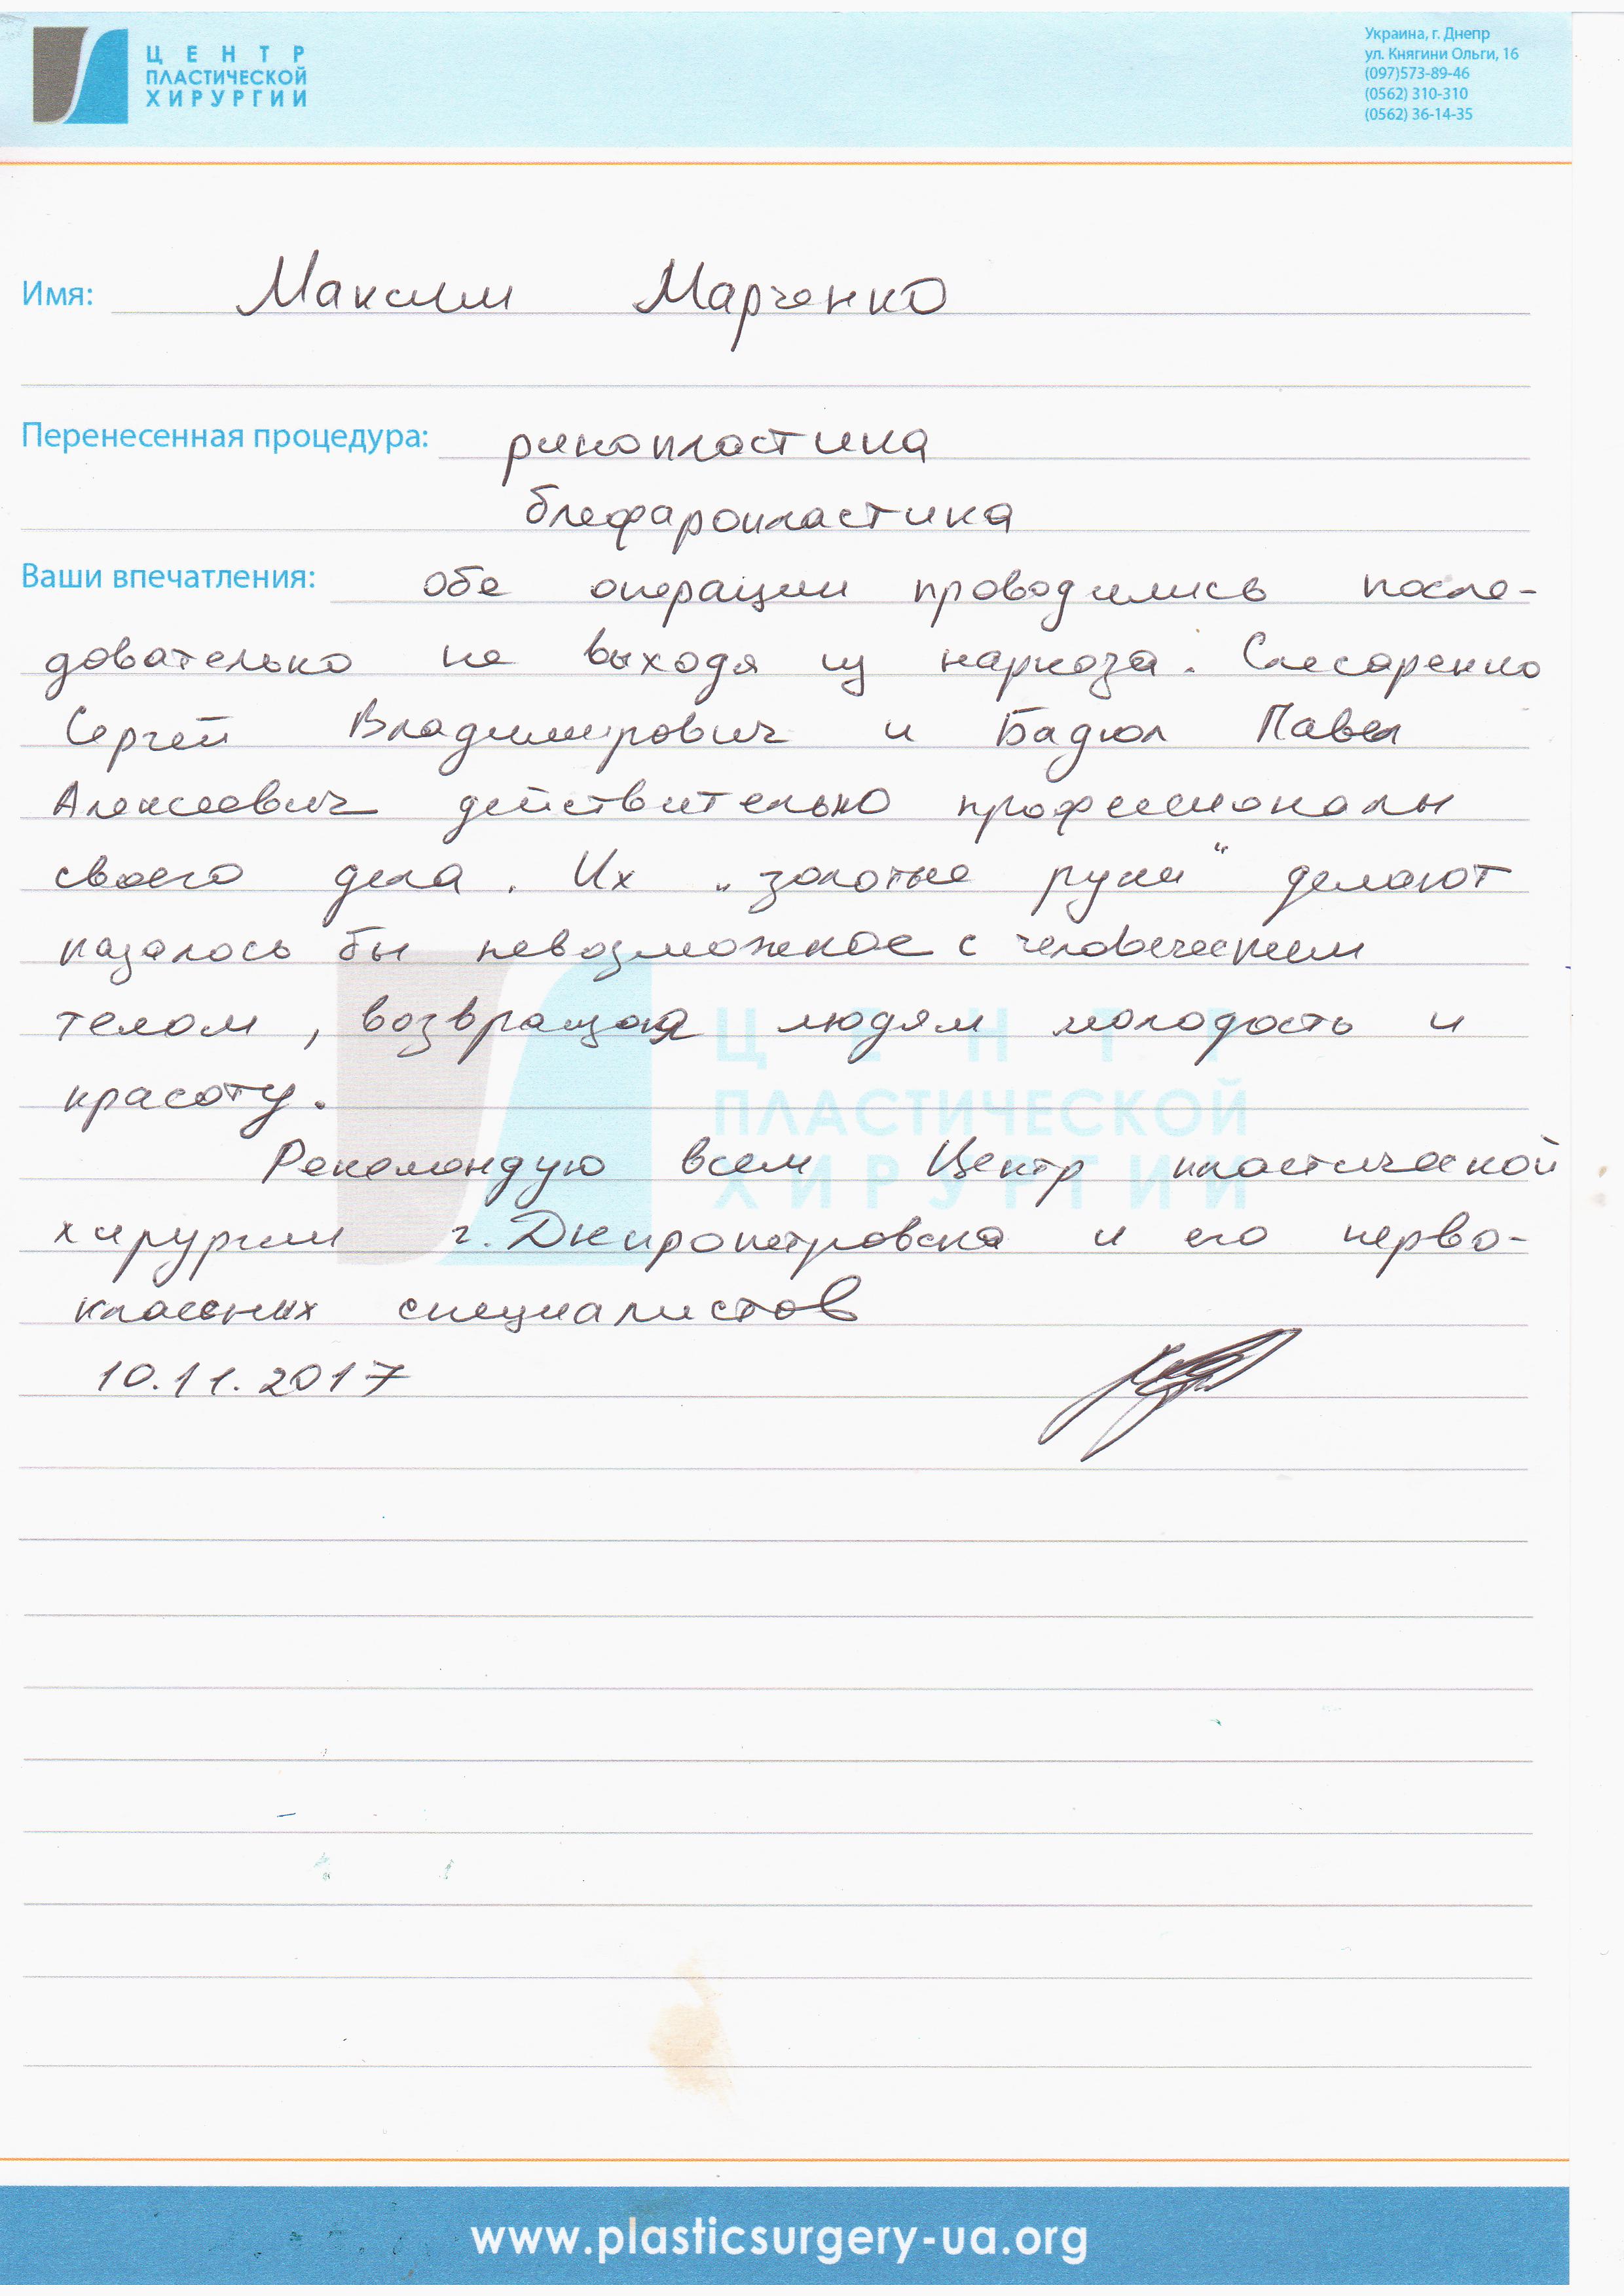 ЦЕНТР
ПЛАСТИЧЕСКОЙ
ХИРУРГИИ
Украина, г. Днепр
ул. Княгини Ольги, 16
(097)573-89-46
(0562) 310-310
(0562) 36-14-35
Имя: Максим Марченко
Перенесенная процедура: ринопластика
блефаропластика
Ваши впечатления: обе операции проводились после-
довательно не выходя из наркоза. Слесаренко
Сергей Владимирович и Бадюл Павел
Алексеевич действительно профессионалы
своего дела. Их „золотые руки“ делают
казалось бы невозможное с человеческим
телом, возвращая людям молодость и
красоту.
Рекомендую всем Центр пластической
хирургии г. Днепропетровска и его перво-
классных специалистов
10.11.2017
ЦЕНТР
ПЛАСТИЧЕСКОЙ
ХИРУРГИИ
www.plasticsurgery-ua.org